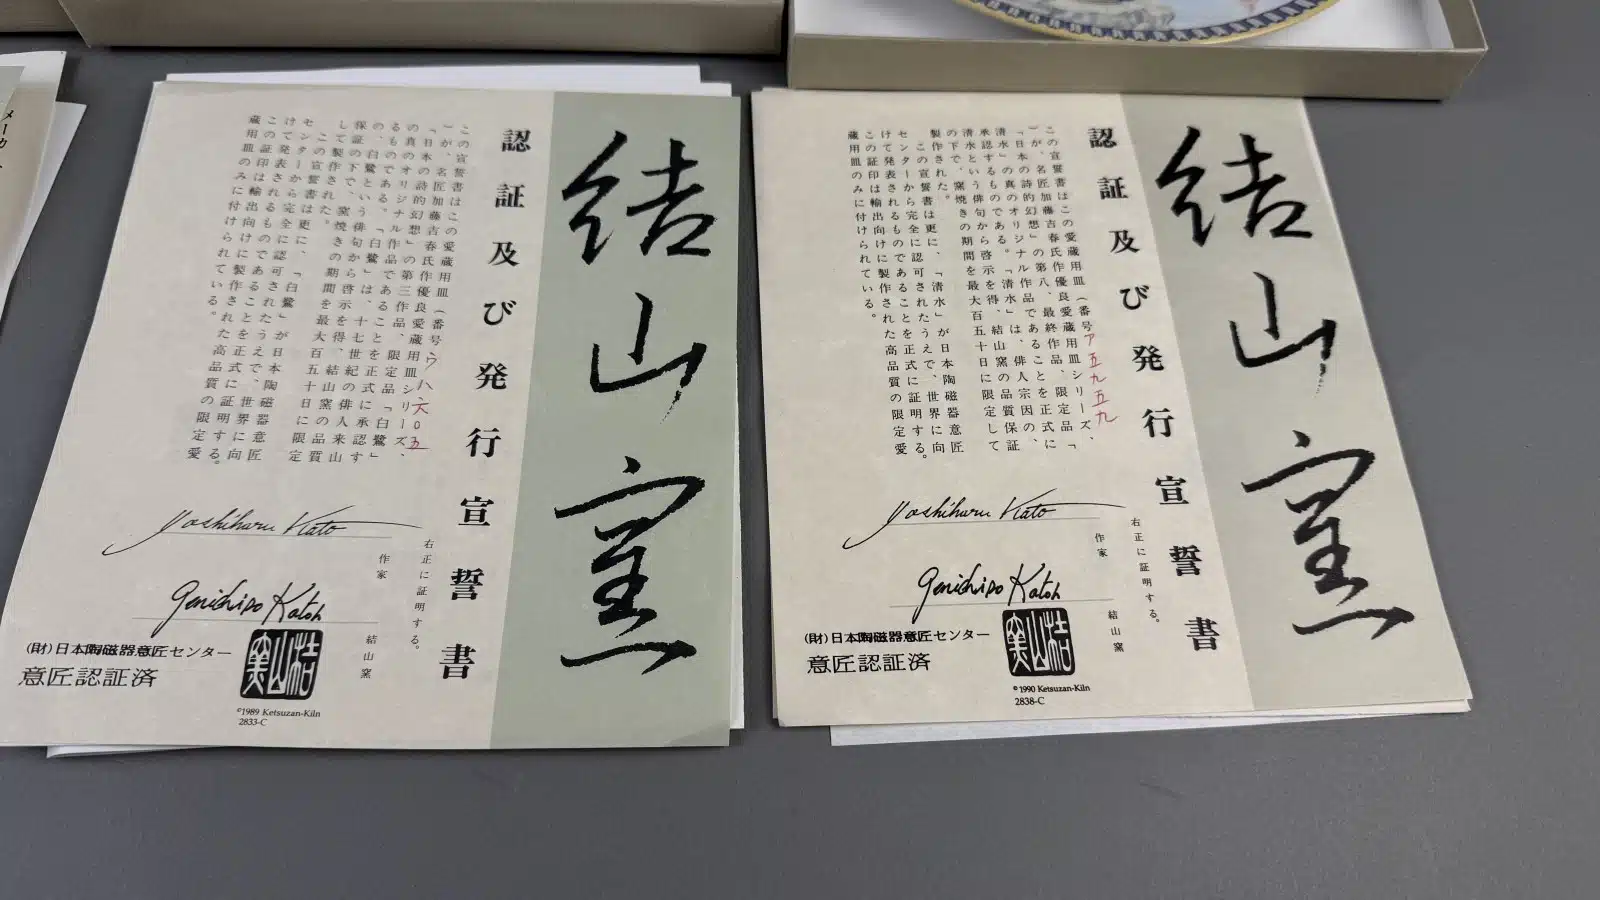 メーカ
結山窯
認証及び発行宣誓書
この宣誓書はこの愛蔵用皿(番号ウ八六〇五
)が、名匠加藤吉春氏作優良愛蔵用皿シリーズ、
「日本の詩的幻想」の第三作品、限定品「白鷺」
の真のオリジナル作品であることを正式に承認す
るものである。「白鷺」は、十七世紀の俳人来山
の、白鷺という俳句から啓示を得、結山窯の品質
保証の下で、窯焼きの期間を最大百五十日に限定
して製作された。
この宣誓書は更に、「白鷺」が日本陶磁器意匠
センターから完全に認可されたうえで、世界に向
けて発表されるものであることを正式に証明する。
この証印は輸出向けに製作された高品質の限定愛
蔵用皿のみに付けられている。
右正に証明する。
Yoshiharu Kato
作家
Genichiro Katoh
結山窯
(財)日本陶磁器意匠センター
意匠認証済
結山窯
©1989 Ketsuzan-Kiln
2833-C
結山窯
認証及び発行宣誓書
この宣誓書はこの愛蔵用皿(番号ア五九五九
)が、名匠加藤吉春氏作優良愛蔵用皿シリーズ、
「日本の詩的幻想」の第八、最終作品、限定品「
清水」の真のオリジナル作品であることを正式に
承認するものである。「清水」は、俳人宗因の、
清水という俳句から啓示を得、結山窯の品質保証
の下で、窯焼きの期間を最大百五十日に限定して
製作された。
この宣誓書は更に、「清水」が日本陶磁器意匠
センターから完全に認可されたうえで、世界に向
けて発表されるものであることを正式に証明する。
この証印は輸出向けに製作された高品質の限定愛
蔵用皿のみに付けられている。
右正に証明する。
Yoshiharu Kato
作家
Genichiro Katoh
結山窯
(財)日本陶磁器意匠センター
意匠認証済
結山窯
©1990 Ketsuzan-Kiln
2838-C